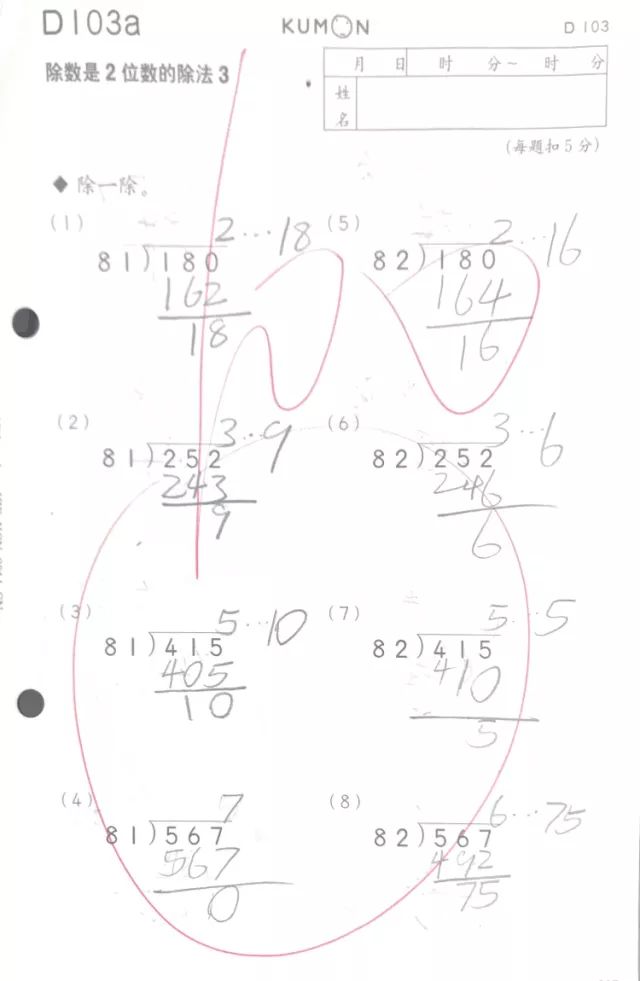 D103a KUMON D 103
除数是2位数的除法3
月 日 时 分~ 时 分
姓名
(每题扣5分)
◆ 除一除。
(1) 2…18
81)180
162
18
(5) 2…16
82)180
164
16
(2) 3…9
81)252
243
9
(6) 3…6
82)252
246
6
(3) 5…10
81)415
405
10
(7) 5…5
82)415
410
5
(4) 7
81)567
567
0
(8) 6…75
82)567
492
75